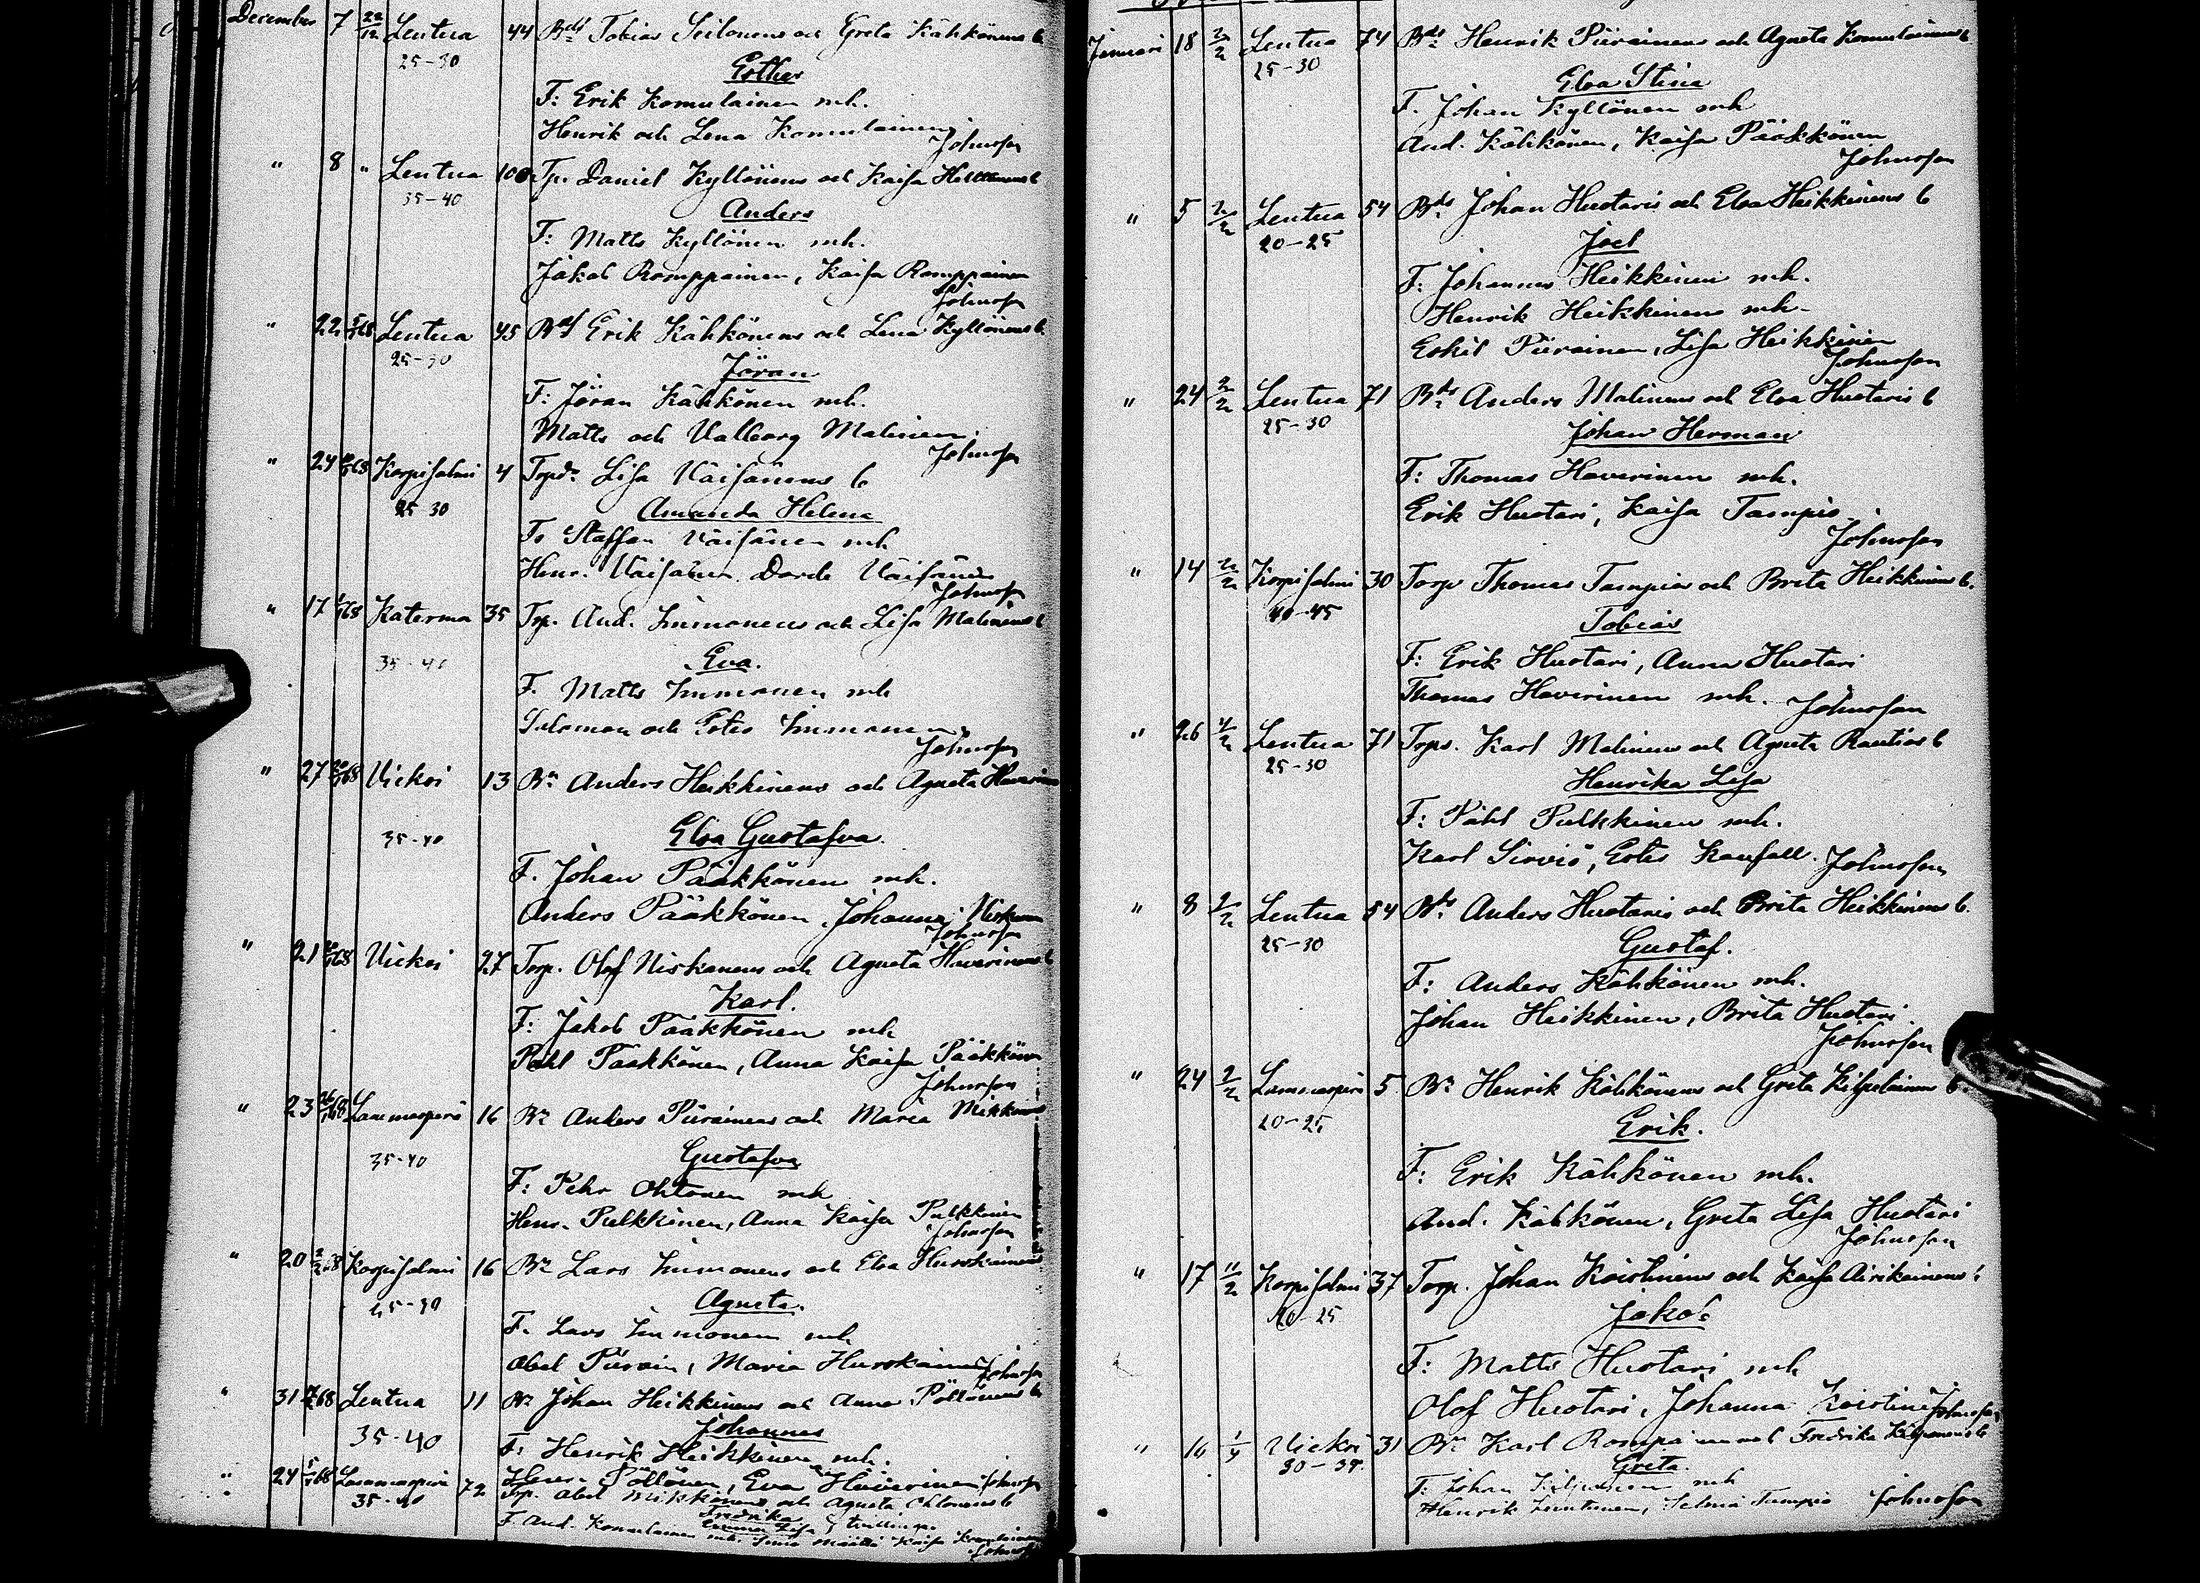 December 7 22/12 Lentua 44 Bds Tobias Seilonens och Greta Kähkönens b
25-30 Esther
F: Erik Komulainen mh.
Henrik och Lena Komulainen
Johnsson
" 8 " Lentua 100 Tp. Daniel Kyllönens och Kaisa
35-40 Anders
F: Matts Kyllönen mh.
Jakob Romppainen, Kaisa Romppainen
Johnsson
" 22 5/1 68 Lentua 45 Bds Erik Kähkönens och Lena Kyllönens b
25-30 Jöran
F: Jöran Kähkönen mh.
Matts och Valborg Malinen
Johnsson
" 24 68 Korpisalmi 4 Tpd. Lisa Väisänens b
25-30 Amanda Helena
F: Staffan Väisänen mh
Henr. Väisänen, Dorde Väisänen
Johnsson
" 17 68 Katerma 35 Trp. And. Immonens och Lisa Malinens b
35-40 Eva.
F. Matts Immonen mh
Salomon och Ester Immonen
Johnsson
" 27 68 Vieksi 13 Bn Anders Heikkinens och Agneta
35-40 Elva Gustafva
F. Johan Pääkkönen mh.
Anders Pääkkönen, Johanna
Johnsson
" 21 68 Vieksi 27 Torp. Olof Niskanens och Agneta Haverinens b
Karl.
F: Jakob Pääkkönen mh
Påhl Pääkkönen, Anna Kaisa Pääkkönen
Johnsson
" 23 26/1 68 Lammasperä 16 Bn Anders Piirainens och Maria Mikkonens
35-40 Gustafva
F: Pehr Ohtonen mh
Henr. Pulkkinen, Anna Kaisa Pulkkinen
Johnsson
" 20 2/2 68 Korpisalmi 16 Bn Lars Immonens och Elva Hurskainens
25-30 Agneta.
F. Lars Immonen mh
Abel Piirain, Maria Hurskainen Johnsson
" 31 68 Lentua 11 Bn Johan Heikkinens och Anna Pöllönens b
35-40 Johannes
F: Henrik Heikkinen mh.
Henr. Pöllönen, Eva Haverinen Johnsson
" 24 68 Lammasperä 72 Trp. Abel Mikkonens och Agneta Ohtonens b
35-40 Fredrika
Lisa } tvillingar
F. And. Komulainen mh. Stina Määttä Kaisa Komulainen
Johnsson
Januari 18 2/2 Lentua 74 Bds Henrik Piirainens och Agneta Komulainens b
25-30 Elva Stina
F. Johan Kyllönen mh
And. Kähkönen, Kaisa Pääkkönen
Johnsson
" 5 2/2 Lentua 54 Bds Johan Huotaris och Elva Heikkinens b
20-25 Joel
F: Johannes Heikkinen mh.
Henrik Heikkinen mh-
Eskil Piirainen, Lisa Heikkinen
Johnsson
" 24 2/2 Lentua 71 Bds Anders Malinens och Elva Huotaris b
25-30 Johan Herman
F: Thomas Haverinen mh.
Erik Huotari, Kaisa Tampio
Johnsson
" 14 2/2 Korpisalmi 30 Torp Thomas Tampios och Brita Heikkinens b.
40-45 Tobias
F: Erik Huotari, Anna Huotari
Thomas Haverinen mh. Johnsson
" 26 2/2 Lentua 71 Torps. Karl Malinens och Agneta Rautios b
25-30 Henrika Lisa
F: Påhl Pulkkinen mh.
Karl Sirviö, Ester Kaufall. Johnsson
" 8 2/2 Lentua 54 Bds Anders Huotaris och Brita Heikkinens b.
25-30 Gustaf.
F: Anders Kähkönen mh.
Johan Heikkinen, Brita Huotari
Johnsson
" 24 2/2 Lammasperä 5 Bn Henrik Kähkönens och Greta Kilpeläinens b
20-25 Erik.
F: Erik Kähkönen mh.
And. Kähkönen, Greta Lisa Huotari
Johnsson
" 17 11/2 Korpisalmi 37 Torp. Johan Koistinens och Kaisa Airikainens b
20-25 Jakob
F: Matts Huotari mh
Olof Huotari, Johanna Koistinen Johnsson
" 16 Vieksi 31 Bn Karl Romppainens och Fredrika b
30-35 Greta.
F: Johan mh
Henrik Juntunen, Selma Tampio Johnsson